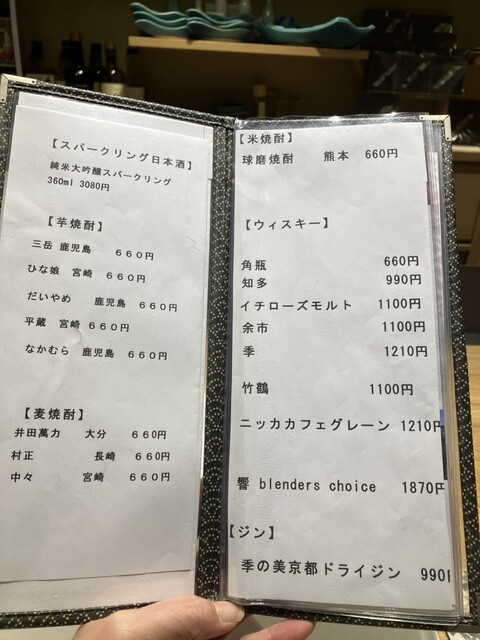 【スパークリング日本酒】
純米大吟醸スパークリング
360ml 3080円
【芋焼酎】
三岳 鹿児島 660円
ひな娘 宮崎 660円
だいやめ 鹿児島 660円
平蔵 宮崎 660円
なかむら 鹿児島 660円
【麦焼酎】
井田萬力 大分 660円
村正 長崎 660円
中々 宮崎 660円
【米焼酎】
球磨焼酎 熊本 660円
【ウィスキー】
角瓶 660円
知多 990円
イチローズモルト 1100円
余市 1100円
季 1210円
竹鶴 1100円
ニッカカフェグレーン 1210円
響 blenders choice 1870円
【ジン】
季の美京都ドライジン 990円